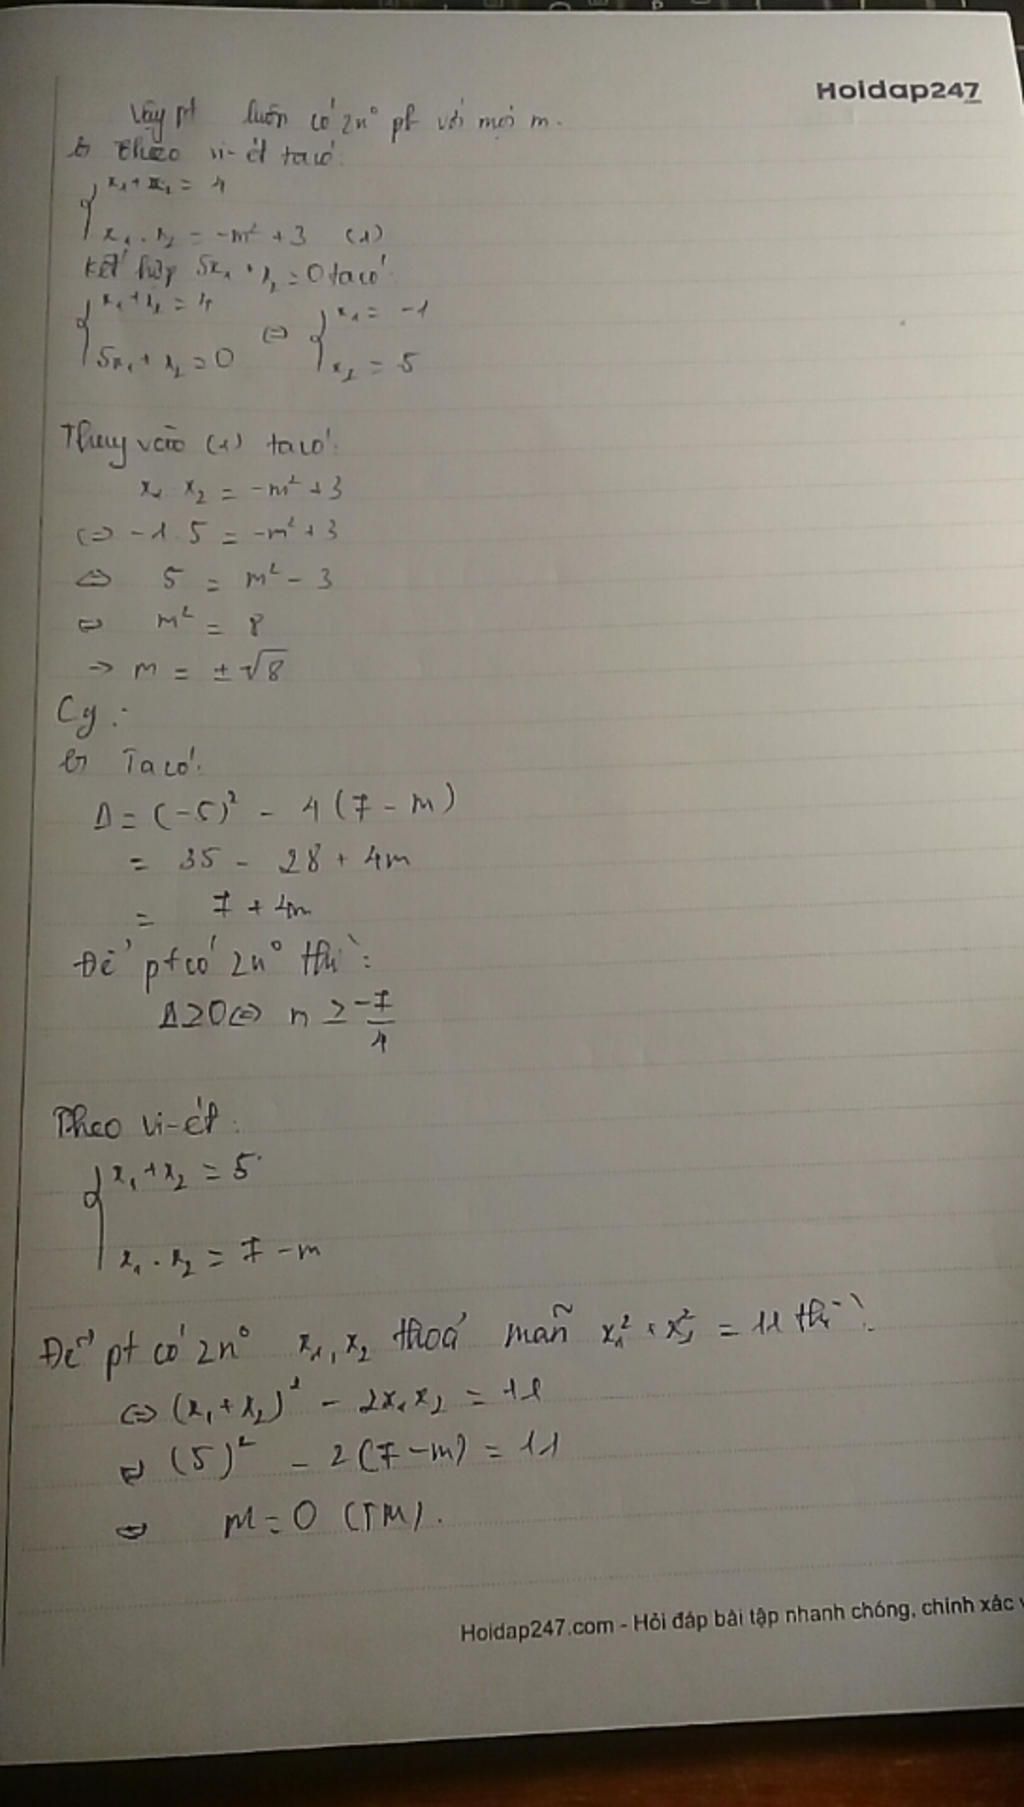 Hoidap247
Vậy pt luôn có 2n° pb với mọi m.
b Theo vi-ét ta có:
x₁ + x₂ = 4
x₁ . x₂ = -m² + 3 (1)
Kết hợp 5x₁ + x₂ = 0 ta có:
x₁ + x₂ = 4 ⇔ x₁ = -1
5x₁ + x₂ = 0 x₂ = 5
Thay vào (1) ta có:
x₁ x₂ = -m² + 3
⇔ -1.5 = -m² + 3
⇔ 5 = m² - 3
⇔ m² = 8
→ m = ±√8
b Ta có:
Δ = (-5)² - 4(7 - m)
= 35 - 28 + 4m
= 7 + 4m
Để pt có 2n° thì:
Δ ≥ 0 ⇔ m ≥ -7/4
Theo vi-ét:
x₁ + x₂ = 5
x₁ . x₂ = 7 - m
Để pt có 2n° x₁, x₂ thoả mãn x₁² + x₂² = 11 thì:
⇔ (x₁ + x₂)² - 2x₁x₂ = 11
⇔ (5)² - 2(7 - m) = 11
⇔ m = 0 (TM).
Hoidap247.com - Hỏi đáp bài tập nhanh chóng, chính xác